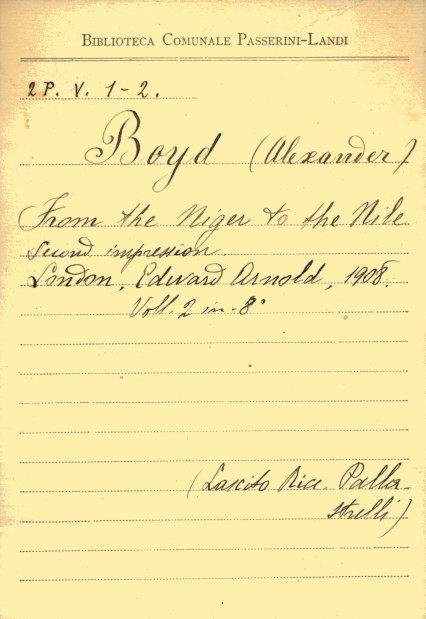 BIBLIOTECA COMUNALE PASSERINI-LANDI
2 P. V. 1-2.
Boyd (Alexander)
From the Niger to the Nile
Second impression.
London, Edward Arnold, 1908.
Voll. 2 in-8°
(Lascito Ric. Palla-
strelli)